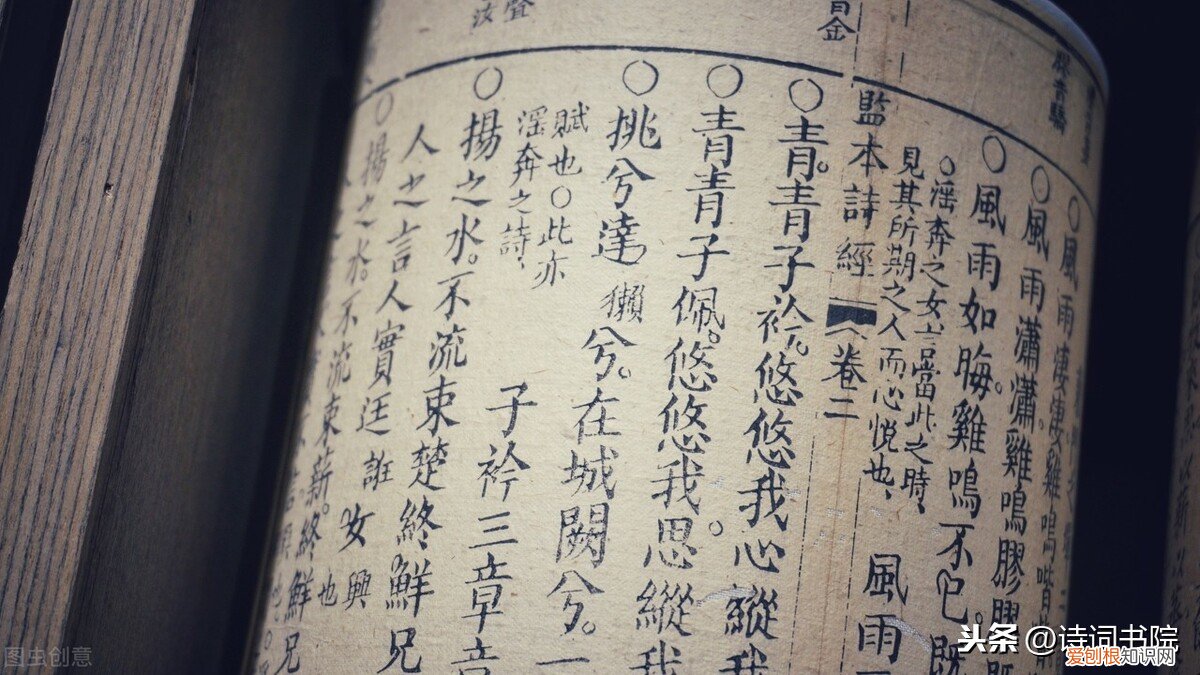 風雨淒淒雞鳴喈
風雨瀟瀟雞鳴膠膠
風雨如晦。雞鳴不已。既
○淫奔之女言當此之時、
見其所期之人而心悅也、
風雨
監本詩經
卷二
青。青青子衿。悠悠我心縱我
青青子佩。悠悠我思。縱我
挑兮達獺兮。在城闕兮。一
賦也○此亦
淫奔之詩、
子衿三章章
揚之水。不流束楚終鮮兄
人之言人實迋誑女興也
揚之水。不流束薪。終鮮兄
图虫创意
头条 @诗词书院
爱刨根知识网